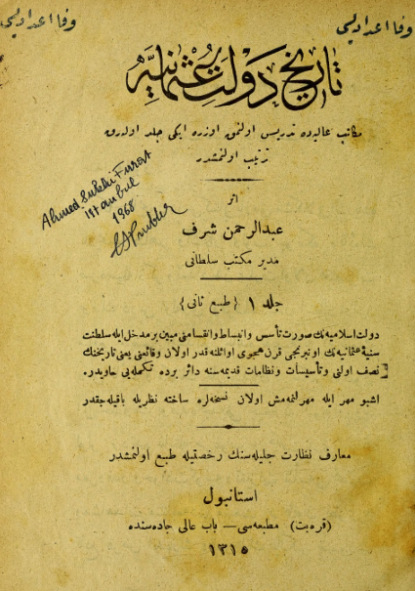 وفا اعدادیسی
وفا اعدادیسی
تاریخ دولت عثمانیه
مکاتب عالیه‌ده تدریس اولنمق اوزره ایکی جلد اوله‌رق
ترتیب اولنمشدر
Ahmed Subhi Furat
istanbul
1968
اثر
عبدالرحمن شرف
مدیر مکتب سلطانی
جلد ۱ {طبع ثانی}
دولت اسلامیه‌نك صورت تأسس وانبساط وانقسامنی مبین بر مدخل ایله سلطنت
سنیهٔ عثمانیه‌نك اون برنجی قرن هجری اوائلنه قدر اولان وقائعنی یعنی تاریخنك
نصف اولنی وتأسیسات ونظامات قدیمه‌سنه دائر برده تکمله‌یی حاویدر.
اشبو مهر ایله مهرلنمه‌مش اولان نسخه‌لره ساخته نظریله باقیله‌جقدر
معارف نظارت جلیله‌سنك رخصتیله طبع اولنمشدر
استانبول
(قره‌بت) مطبعه‌سی — باب عالی جاده‌سنده
۱۳۱۵